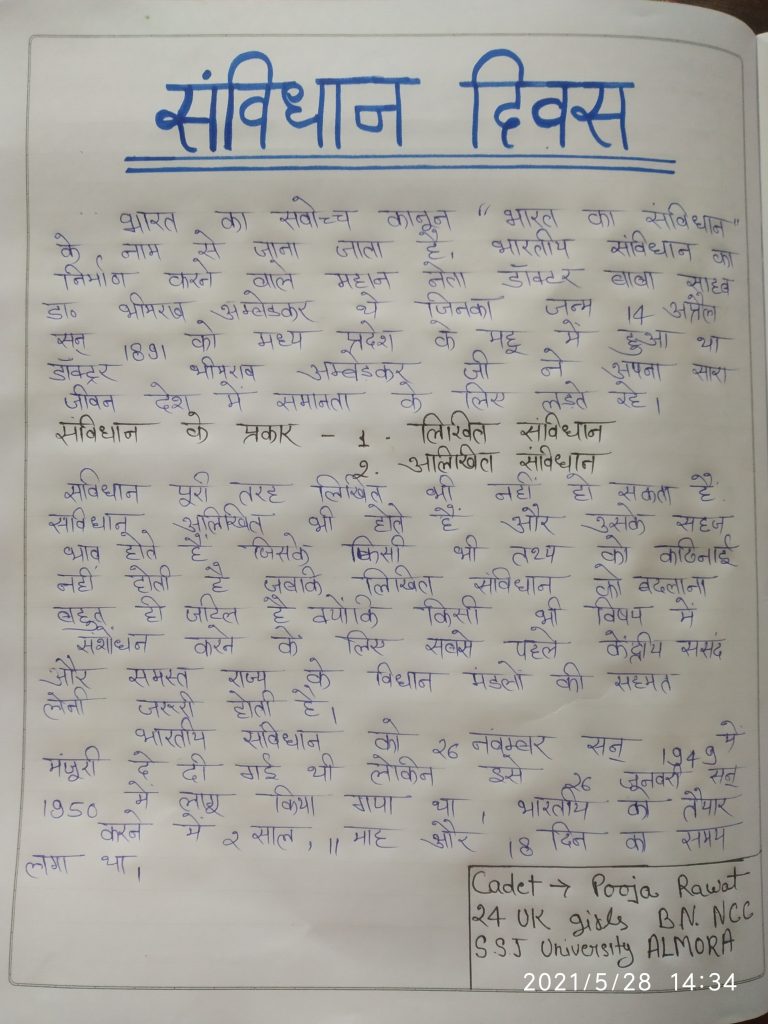 संविधान दिवस
भारत का सर्वोच्च कानून "भारत का संविधान"
के नाम से जाना जाता है, भारतीय संविधान का
निर्माण करने वाले महान नेता डॉक्टर बाबा साहब
डा० भीमराव अम्बेडकर थे जिनका जन्म 14 अप्रैल
सन् 1891 को मध्य प्रदेश के महू में हुआ था
डॉक्ट्रर भीमराव अम्बेडकर जी ने अपना सारा
जीवन देश में समानता के लिए लड़ते रहे।
संविधान के प्रकार - 1. लिखित संविधान
2. अलिखित संविधान
संविधान पूरी तरह लिखित भी नहीं हो सकता है.
सविधान अलिखित भी होते हैं और उसके सहज
भाव होते हैं जिसके किसी भी तथ्य को कठिनाई
नहीं होती है जबकि लिखित संविधान को बदलाना
बहुत ही जटिल है क्योंकि किसी भी विषय में
संशोधन करने के लिए सबसे पहले केंद्रीय ससंद
और समस्त राज्य के विधान मंडलों की सहमत
लेनी जरूरी होती है।
भारतीय सविधान को 26 नवम्बर सन् 1949 में
मंजूरी दे दी गई थी लेकीन इसे 26 जनवरी सन्
1950 में लागू किया गया था, भारतीय को तैयार
करने में 2 साल, 11 माह और 18 दिन का समय
लगा था,
Cadet → Pooja Rawat
24 UK girls BN. NCC
S.S.J University ALMORA
2021/5/28 14:34